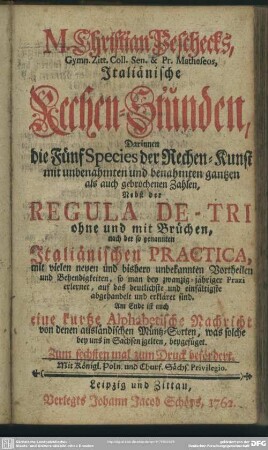 M. Christian Peschecks,
Gymn. Zitt. Coll. Sen. & Pr. Matheseos,
Italiänische
Rechen-Stunden,
Darinnen
die Fünf Species der Rechen-Kunst
mit unbenahmten und benahmten gantzen
als auch gebrochenen Zahlen,
Nebst der
REGULA DE-TRI
ohne und mit Brüchen,
auch der so genannten
Italiänischen PRACTICA,
mit vielen neuen und bishero unbekannten Vortheilen
und Behendigkeiten, so man bey zwantzig-jähriger Praxi
erlernet, auf das deutlichste und einfältigste
abgehandelt und erkläret sind.
Am Ende ist auch
eine kurtze Alphabetische Nachricht
von denen ausländischen Müntz-Sorten, was solche
bey uns in Sachsen gelten, beygefüget.
Zum sechsten mal zum Druck befördert.
Mit Königl. Poln. und Churf. Sächs. Privilegio.
Leipzig und Zittau,
Verlegts Johann Jacob Schöps, 1762.